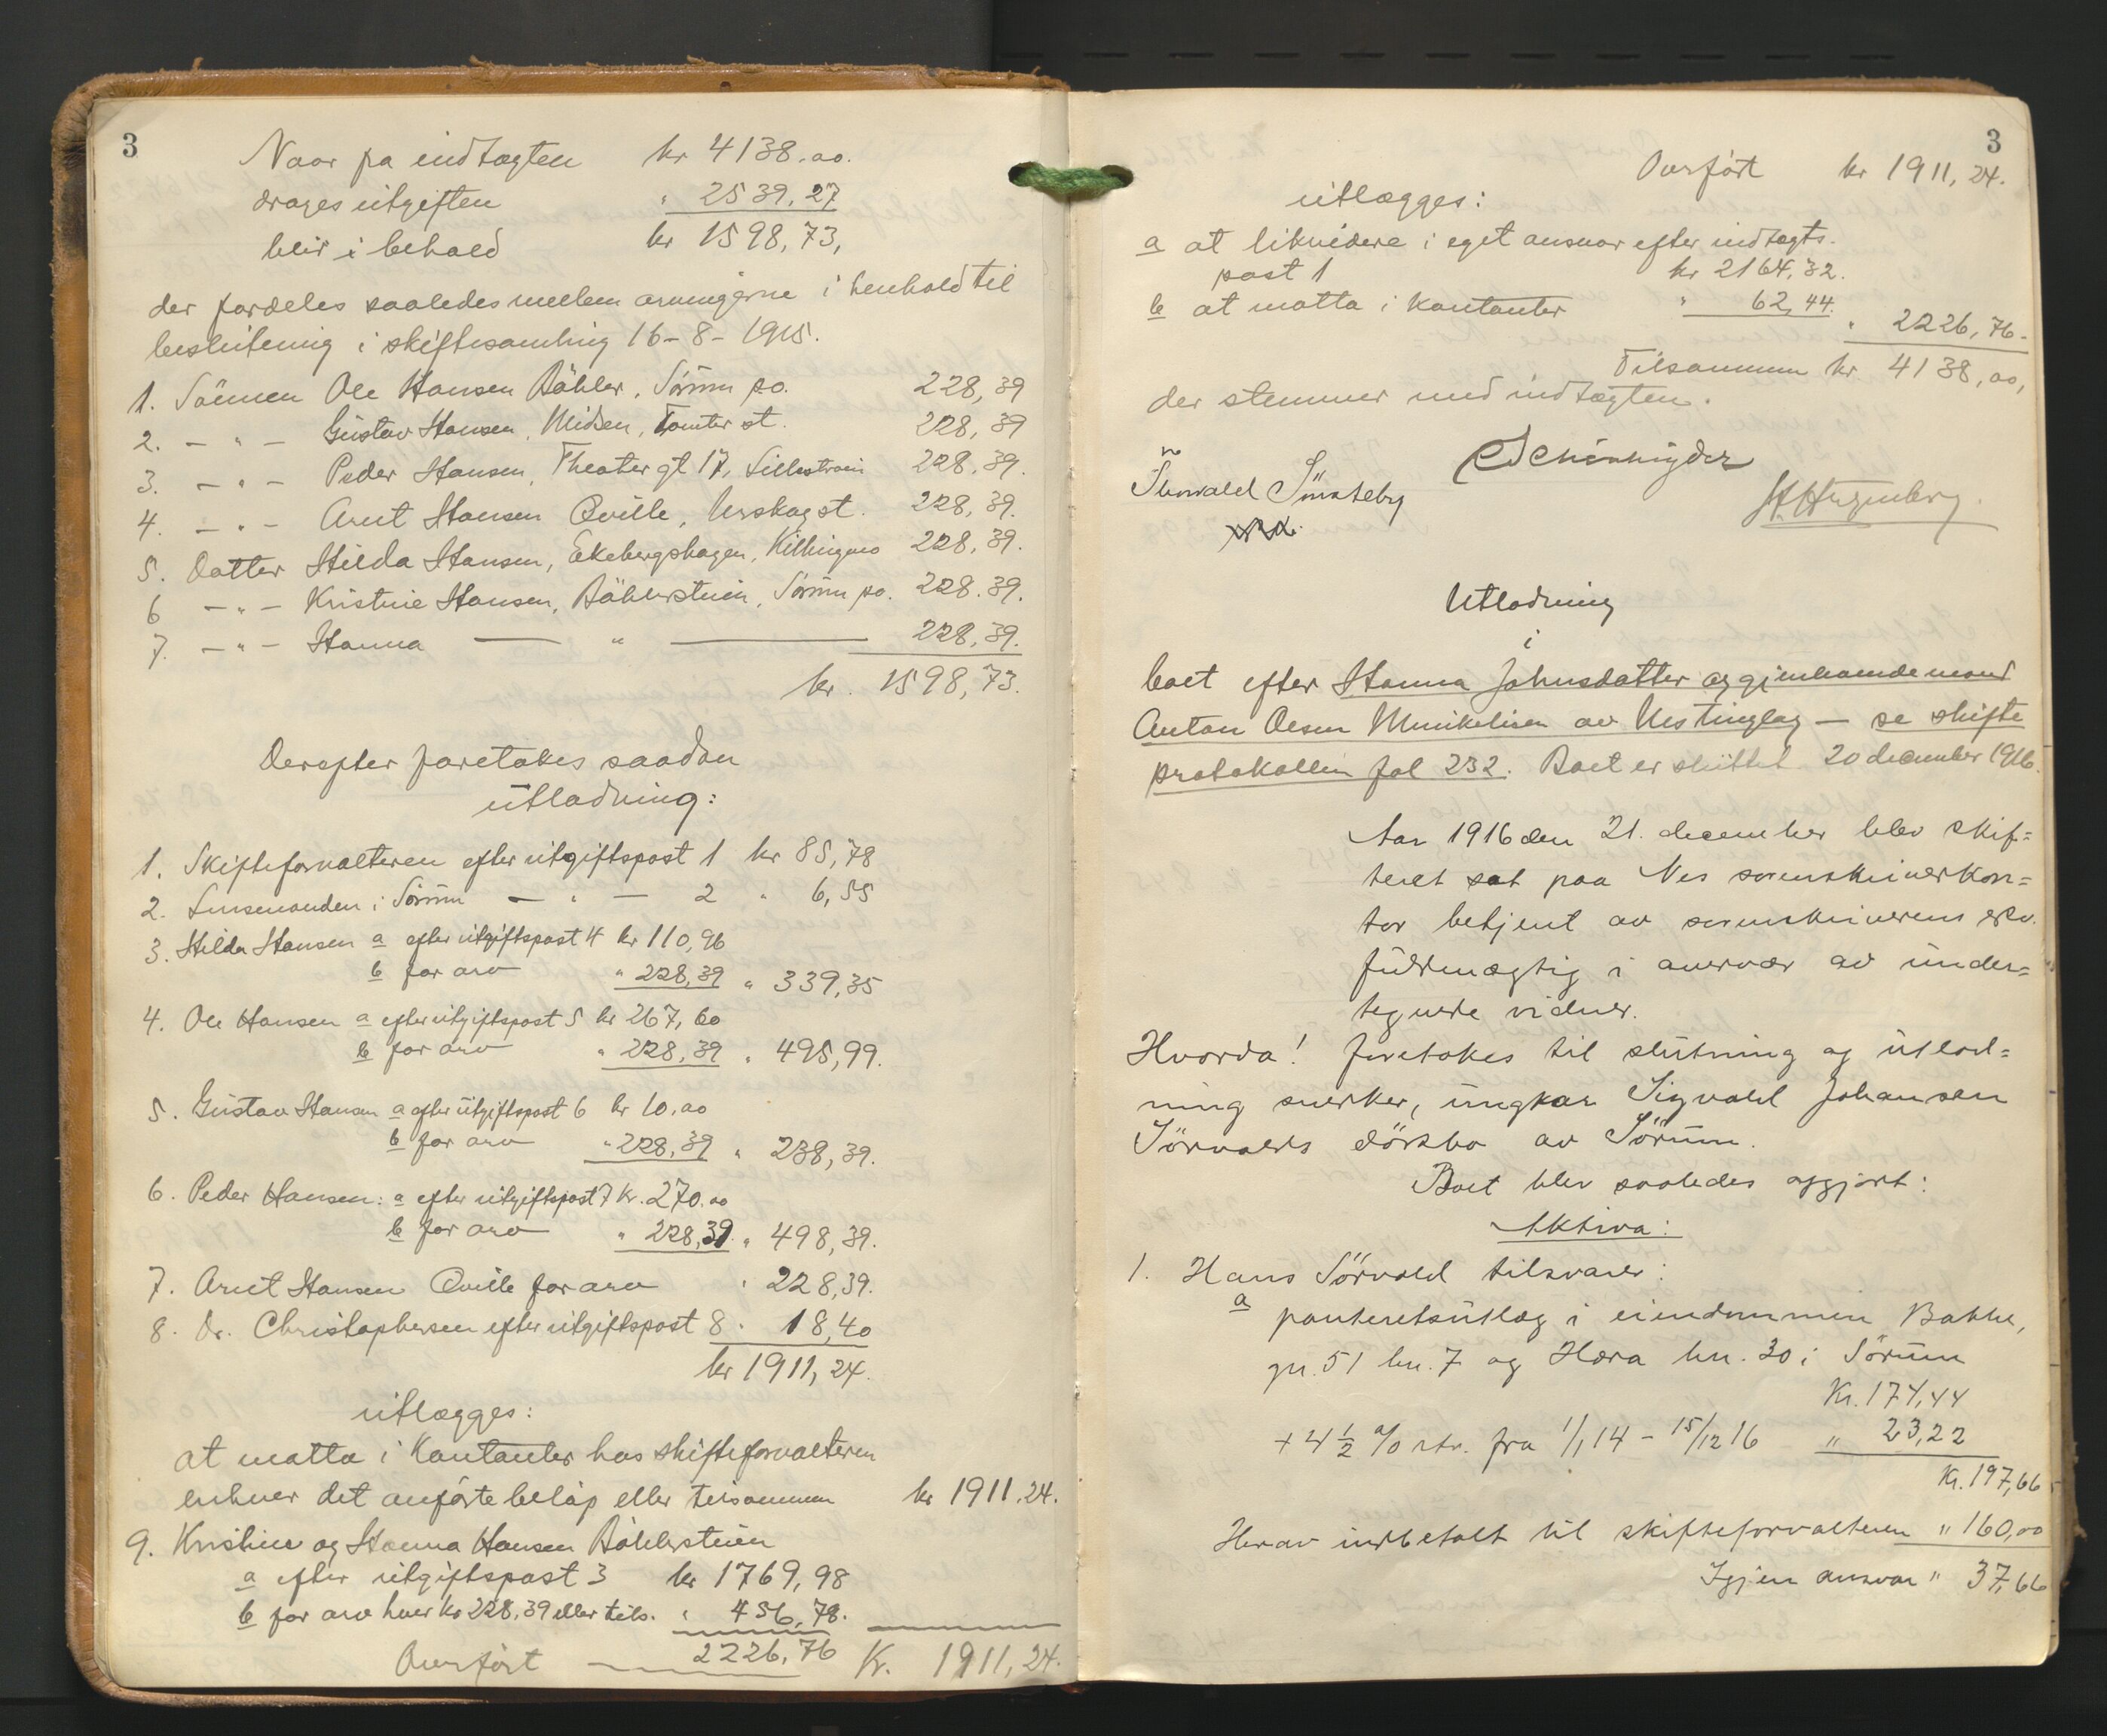 3
Naar fra indtægten kr 4138.00.
drages utgiften " 2539,27
blir i behold kr 1598,73,
der fordeles saaledes mellem arvingerne i henhold til
beslutning i skiftesamling 16-8-1915.
1. Sönnen Ole Hansen Böhler, Sörum po. 228,39
2. – " – Gustav Hansen, Midsen, Tomter st. 228,39
3. – " – Peder Hansen, Theater gt 17, Lillestrøm 228,39.
4. – " – Arnt Hansen Qville, Urskog st. 228,39.
5. Datter Hilda Hansen, Ekebergshagen, 228,39.
6 – " – Kristine Hansen, Böhlerstuen, Sörum po. 228.39.
7. – " – Hanna — " — 228,39.
kr. 1598,73.
Derefter foretokes saadan
utlodning:
1. Skifteforvalteren efter utgiftspost 1 kr 85,78
2. Lensmanden i Sörum – " – 2 " 6,55
3. Hilda Hansen a efter utgiftspost 4 kr 110,96
b for arv " 228,39 " 339,35
4. Ole Hansen a efter utgiftspost 5 kr 267,60
b for arv " 228,39 " 495,99.
5. Gustav Hansen a efter utgiftspost 6 kr 10.00
b for arv " 228,39 " 238,39.
6. Peder Hansen: a efter utgiftspost 7 Kr. 270.00
b for arv " 228,39. " 498,39.
7. Arnt Hansen Qville for arv " 228,39.
8. Dr. Christophersen efter utgiftspost 8 " 18,40
kr 1911,24.
utlægges:
at motta i Kontanter hos skifteforvalteren
enhver det anförte belöp eller tilsammen kr 1911.24.
9. Kristine og Hanna Hansen Böhlerstuen
a efter utgiftspost 3 kr 1769,98
b for arv hver kr 228,39 eller tils. " 456,78.
Overfört — 2226,76 Kr. 1911,24.
3
Overfört kr 1911,24.
utlægges:
a at likvidere i eget ansvar efter indtægts-
post 1 kr 2164,32.
b at motta i Kontanter " 62,44. " 2226,76.
Tilsammen kr 4138,00,
der stemmer med indtægten.
Thorvald Sönsteby
Utlodning
i
boet efter Hanna Johnsdatter og gjenlevende mand
Anton Olsen Munikelien av Nes tinglag — se skifte
protokollen fol 232. Boet er sluttet 20 december 1916.
Aar 1916 den 21. december blev skif=
teret sat paa Nes sorenskriverkon=
tor betjent av sorenskriverens edsv.
fuldmægtig i nærvær av under=
tegnede vidner.
Hvorda! foretokes til slutning og utlod=
ning snerker, ungkar Sigvald Johansen
Sörvalds dödsbo av Sörum.
Boet blev saaledes opgjort:
Aktiva:
1. Hans Sörvald tilsvarer:
a panteretsutlæg i eiendommen Bakke,
gr. 51 bn. 7 og Hæra bn. 30 i Sörum
Kr. 174,44
+ 4 1/2 % rtr. fra 1/1 14 – 15/12 16 " 23,22
Kr. 197,66
Herav indbetalt til skifteforvalteren " 160,00
Igjen ansvar " 37,66